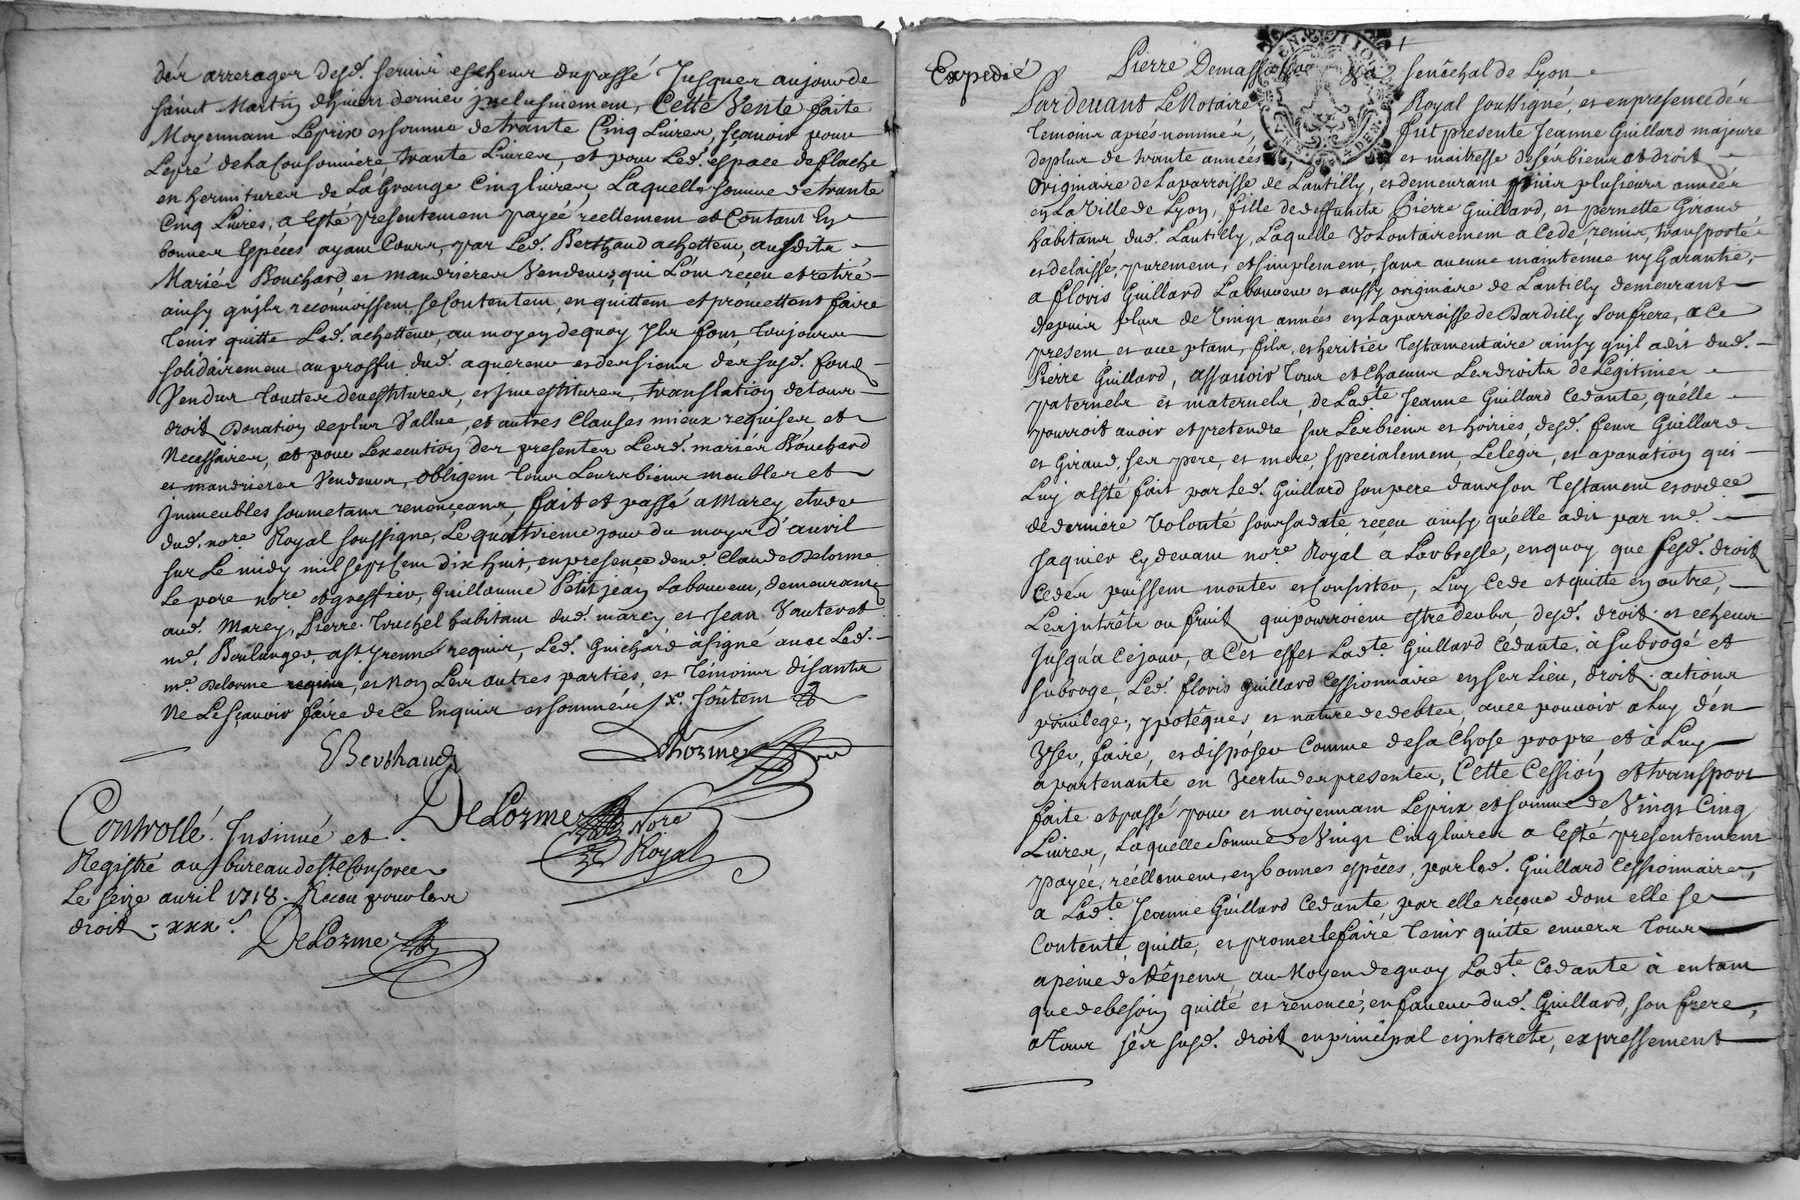 des arrerages desd. servis escheus du passé Jusques aujour de
saint Martin dhiuers dernier jnclusiuement, Cette Vente faite
Moyennam Leprix essomme detrante Cinq Liures, sçauoir pour
Lepré delaCousonniere trante Liures, et pour Led. espace deflache
en hermitures de LaGrange Cinqliures, Laquelle somme detrante
Cinq Liures, a Esté presentement payéé réellement et Contant En
bonnes Espéces ayam Cours, par Led. Berthaud achetteur, ausdits
Mariés Bouchard, es mandrieres Vendeurs, qui L'ont réçeu et retiré
ainsy qu'jls reconnoissem, seContentem, en quittem et promettent faire
tenir quitte Led. achetteur, au moyen dequoy jls font, toujours
solidairement au proffit dud. aquereur esdessiens des susd. fond
Vendus touttes deuestitures, esjnuestitures, translation detous
droit Donation deplus Vallue, et autres Clauses mieux requises, et
Necessaires, et pour Lexecution des presentes Lesd. mariés Bouchard
es mandrieres Vendeurs, obligent tous Leurs biens meubles et
jmmeubles soumetans renonceans, fait et passé a Marcy etude
dud. nore. Royal soussigné, Le quatrieme jour du moys d'auril
sur Le midy mil sept Cent dix huit, en presence deme. Claude Delorme
Le pere nore. et greffier, Guillaume Petitjean Laboureur, demeurans
aud. Marcy, Pierre Truchel habitant dud. marcy es Jean Vauterot
me. Boulanger, requis, Led. Guichard àsigné auec Led.
me. Delorme, es Non Les autres parties, es temoins disants
Ne Lesçauoir faire de Ce Enquis essommés
Berthaud
Delorme
DeLorme Nore
Royal
Controllé. Jnsinué et
Registré au bureau de ste Consorce
Le seize auril 1718. Receu pour les
droit - xxx s.
DeLorme
Expedié
Pierre Demass senéchal de Lyon
Pardeuant Le Notaire Royal soussigné, es enpresence dés
temoins aprés nommés, fut presente Jeanne Guillard majeure
deplus de trante années, es maitresse desés biens et droit
originaire de Laparroisse de Lantilly, esdemeurant depuis plusieurs années
en La Ville de Lyon, fille dedeffunts Pierre Guillard, es pernette Giraud
habitans dud. Lantilly, Laquelle Volontairement a Cedé, remis, transporté
esdelaissé, purement, etsimplement, sans aucune maintenue ny Garantie,
a floris Guillard Laboureur es aussy originaire de Lantilly demeurant
depuis plus de Vingt années en Laparroisse de Dardilly son frere, a Ce
present es acceptant, fils, esheritier testamentaire ainsy qu'jl adit dud.
Pierre Guillard, assauoir tous et Chacuns Lesdroits de Légitimes
paternels es maternels, de Ladte. Jeanne Guillard Cedante, qu'elle
pourroit auoir et pretendre sur Lesbiens es hoiries, desd. feus Guillard
es Giraud, ses pere, es mere, specialement, Lelegs, es apanation qui
Luy a Esté fait par Led. Guillard son pere dans son testament esordce
dederniere Volonté sous sa daté, réçeu ainsy qu'elle adit par me.
Jaquier Cydeuant nore. Royal à Larbresle, enquoy que Lesd. droit
Cedés puissem monter esConsister, Luy Cede et quitte en outre,
Les jntrêts ou fruit qui pourroient estre deubs, desd. droit es echeus
Jusqu'a Cejour, a Cés effet Ladte. Guillard Cedante à subrogé et
subroge, Led. floris Guillard Cessionnaire en ses Lieu, droit. actions
priuilege, ypotêques es nature dedebtes, auec pouuoir à Luy d'en
Vser, faire, es disposer Comme desa Chose propre, et à Luy
apartenante en Vertu des presentes, Cette Cession et transport
faite et passé pour es moyennam Leprix et somme de Vingt Cinq
Liures, Laquelle somme de Vingt Cinq liures a Esté presentement
payée, réellement, en bonnes espêces, par led. Guillard Cessionnaire,
a Ladte. Jeanne Guillard Cedante par elle réçeue dont elle se
Contenté, quitte, es promes lefaire tenir quitte enuers tous
apeine de Dépens, au Moyen dequoy Ladte. Cedante à entant
que debesoin quitté es renoncé, enfaueur dud. Guillard, son frere,
a tous sés susd. droit enprincipal esjnterets, expressement